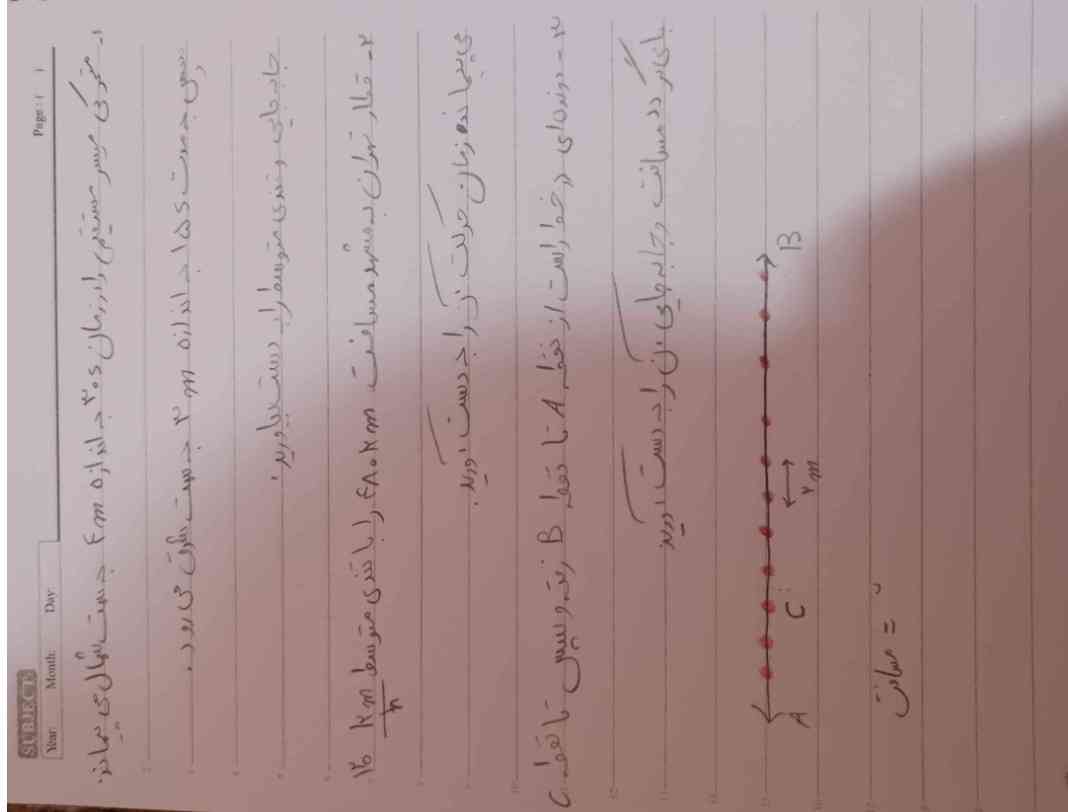 SUBJECT:
Year: Month: Day: Page: ( )
۱- متحرکی مسیر مستقیمی را در زمان ۳۰s به اندازه ۴m به سمت شمال می پیماید.
سپس به مدت ۱۵s به اندازه ۳m به سمت شرق می رود.
جابه جایی و تندی متوسط را به دست بیاورید.
۲- قطار تهران به مشهد مسافت ۴۸۰km را با تندی متوسط ۱۲۰ km/h
می پیماید زمان حرکت آن را به دست آورید.
۳- دونده‌ای در خط راست از نقطه A تا نقطه B رفته و سپس تا نقطه C
بازمی گردد مسافت و جابه جایی آن را به دست آورید
A C B
۲m
مسافت =